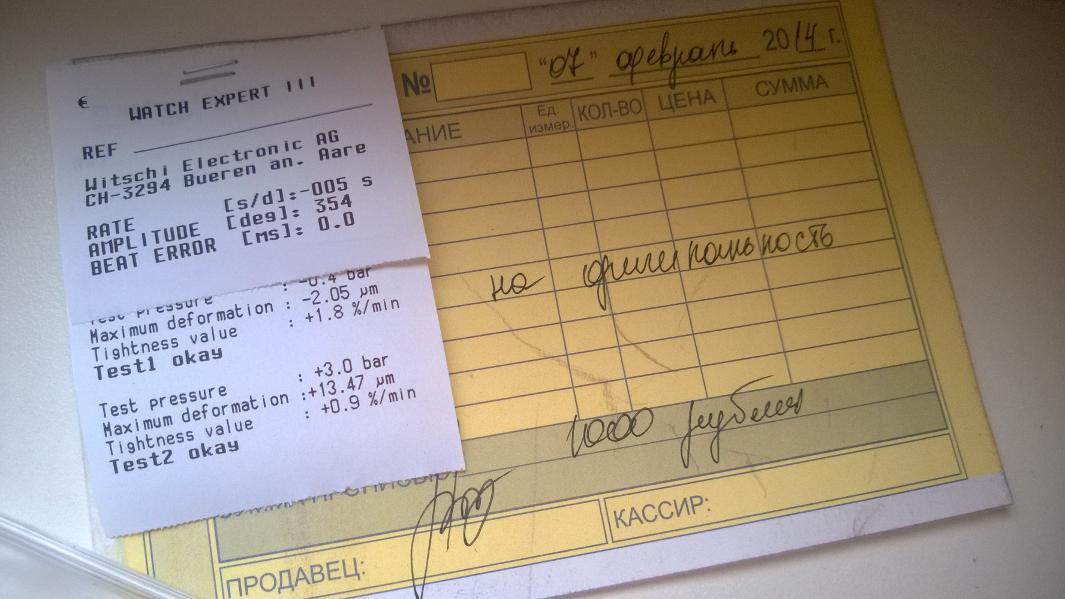 €
WATCH EXPERT III
REF
Witschi Electronic AG
CH-3294 Bueren an. Aare
RATE [s/d]:-005 s
AMPLITUDE [deg]: 354
BEAT ERROR [ms]: 0.0
Test pressure : -0.4 bar
Maximum deformation : -2.05 µm
Tightness value : +1.8 %/min
Test1 okay
Test pressure : +3.0 bar
Maximum deformation :+13.47 µm
Tightness value : +0.9 %/min
Test2 okay
№ "07" февраль 2014 г.
АНИЕ Ед. измер. КОЛ-ВО ЦЕНА СУММА
на оригинальность
1000 рублей
ПРОДАВЕЦ:
КАССИР: